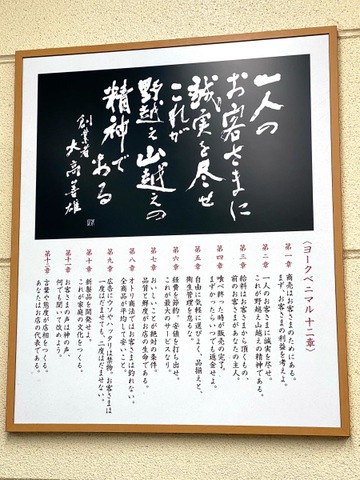 一人の
お客さまに
誠実を尽せ
これが
野越え山越えの
精神で
ある
創業者
大高善雄
〈ヨークベニマル十二章〉
第一章 商売はお客さまのためにある。
まずお客さまの利益を考えよ。
第二章 一人のお客さまに誠実を尽せ、
これが野越え山越えの精神である。
第三章 給料はお客さまから頂くもの、
前のお客さまがあなたの主人。
第四章 喰べ終った時が販売の完了。
まずかったらいつでも返金せよ。
第五章 自由に気軽に選びよく、品揃えと、
衛生管理を怠るな。
第六章 経費を節約、安値を打ち出せ。
これが最大のサービスなり。
第七章 おいしいことが絶対の条件。
品質と鮮度がお店の生命である。
第八章 オトリ商法ではお客さまは釣れない。
全商品が平均して安いこと。
第九章 広告にウソやハッタリは禁物。お客さまは
一度だませても、二度はだませない。
第十章 新製品を開発せよ。
これが家庭の文化をつくる。
第十一章 お客さまの声は神の声。
何でも聞いて早く改めよう。
第十二章 言葉や態度が店相をつくる。
あなたはお店の代表である。